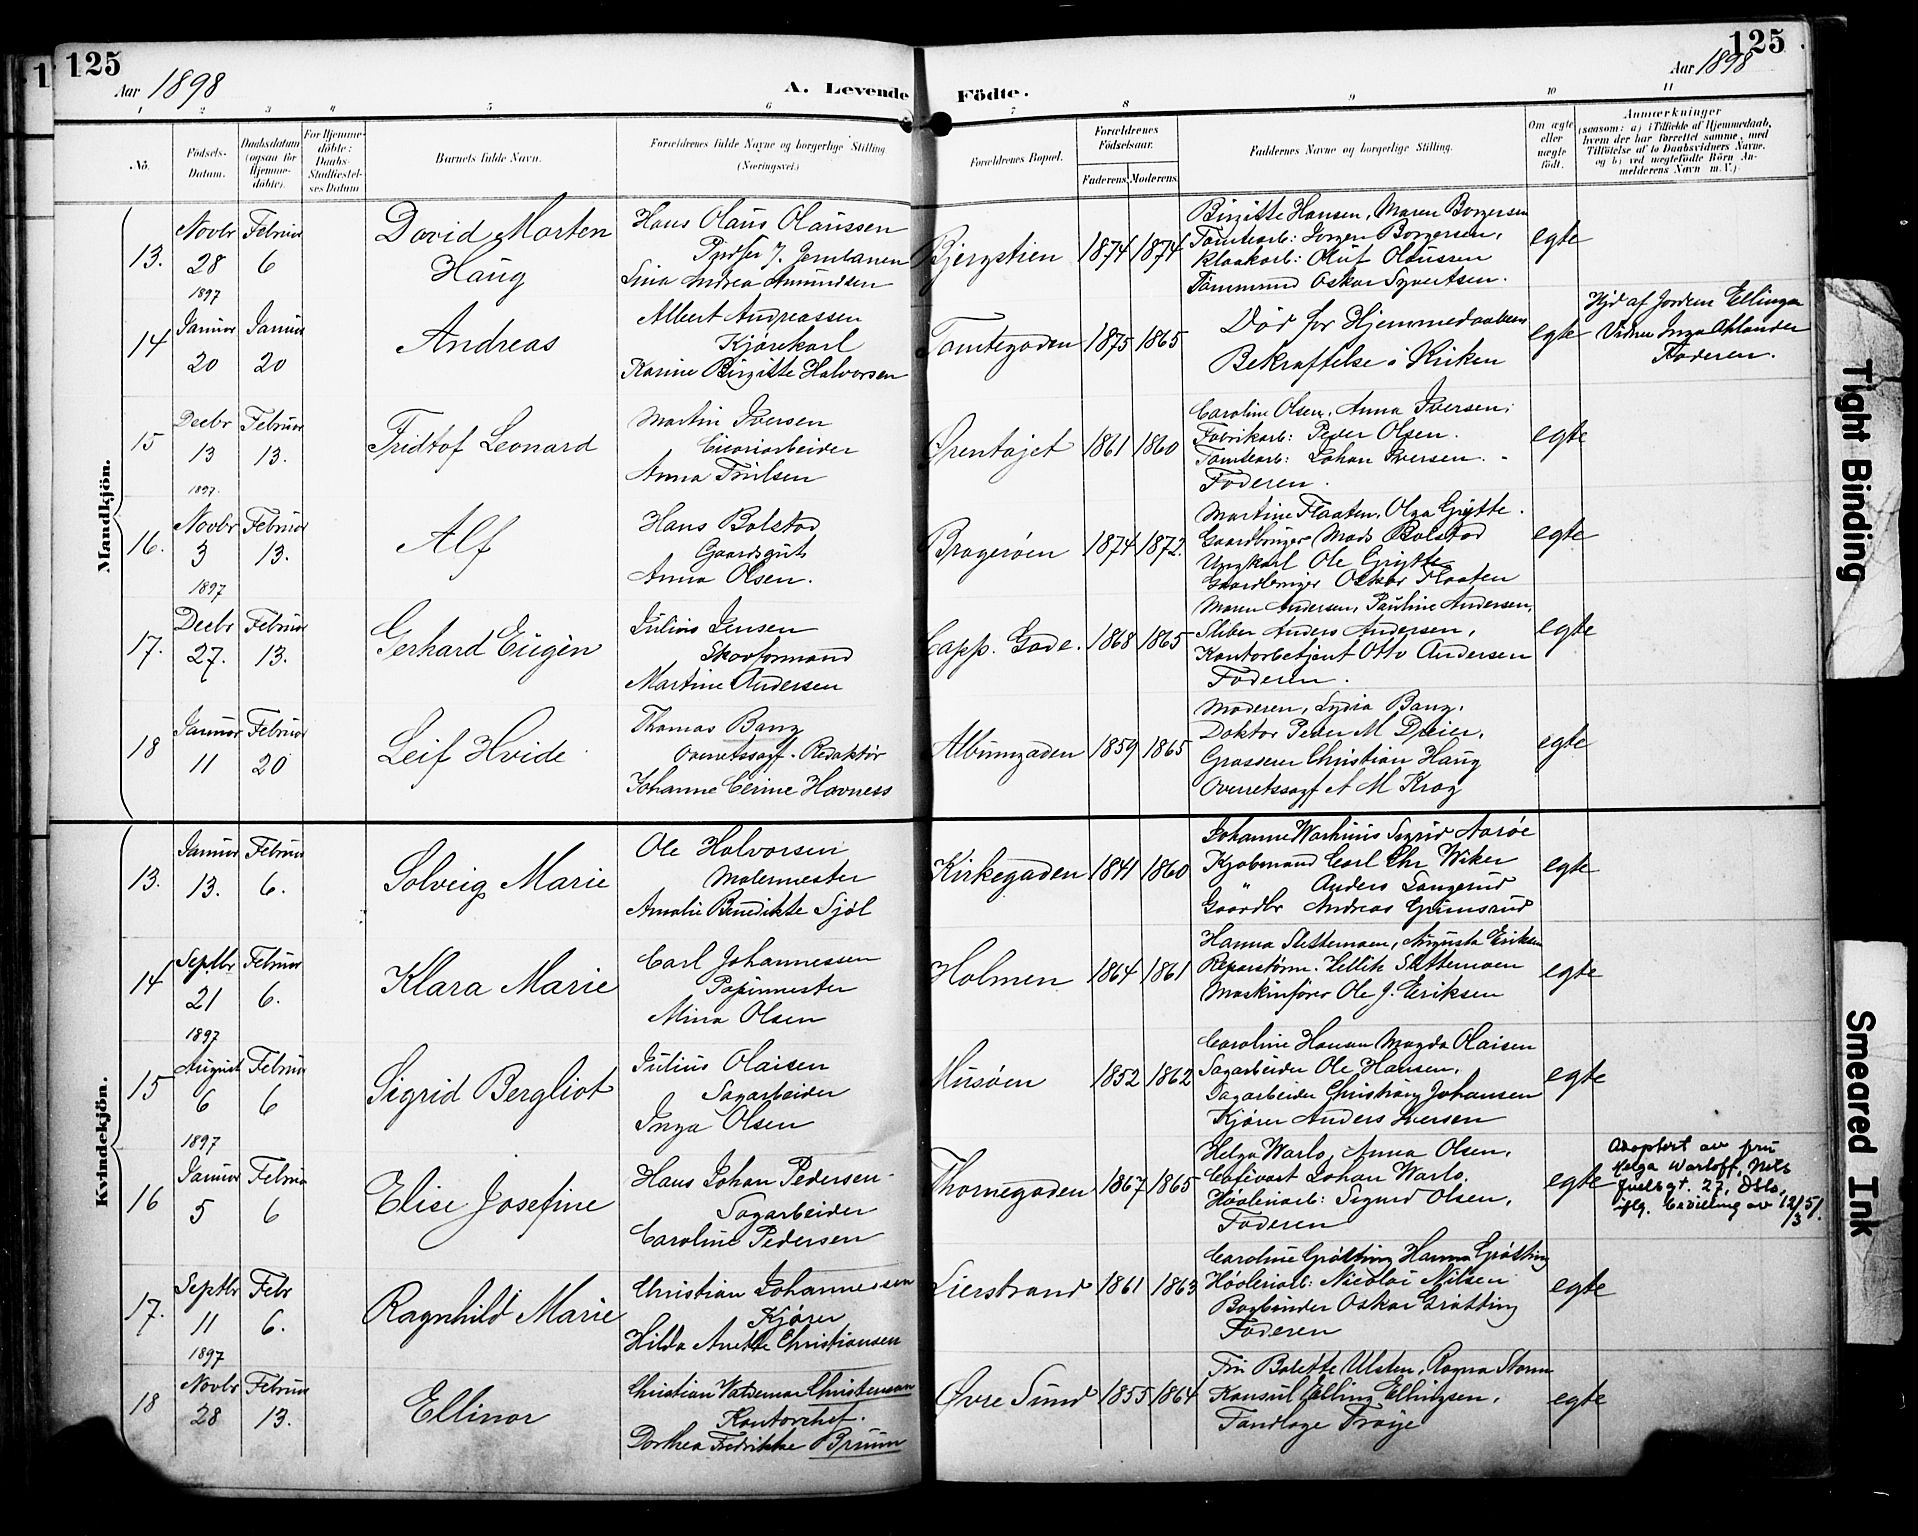 125
Aar 1898
A. Levende
1 2 3 4 5 6
No.
Födsels-Datum.
Daabsdatum (ogsaa for Hjemmedöbte).
For Hjemmedöbte: Daabs-Stadfæstelses Datum
Barnets fulde Navn.
Forældrenes fulde Navne og borgerlige Stilling (Næringsvei).
125
Aar 1898
Födte.
7 8 9 10 11
Forældrenes Bopæl.
Forældrenes Födselsaar.
Faderens. Moderens.
Faddernes Navne og borgerlige Stilling.
Om ægte eller uægte födt.
Anmærkninger
(saasom: a) i Tilfælde af Hjemmedaab,
hvem der har forrettet samme, med
Tilföielse af to Daabsvidners Navne.
og b) ved uægtefödte Börn An-
melderens Navn m. V.)
Mandkjön.
13. Novbr 28 1897 Februar 6 David Morten Haug
Hans Olaus Olaussen
Sina Andrea Amundsen
Bjergstien 1874 1874
Birgitte Hansen, Maren Borgersen
Tomtearb: Jorgen Borgersen,
Olaf Olaussen
Tømmermand Oskar Syvertsen.
egte
14 Januar 20 Januar 20 Andreas
Albert Andreassen
Kjørekarl
Karine Birgitte Halvorsen
Tomtegaden 1875 1865
Død før Hjemmedaabens
Bekræftelse i Kirken
egte
Hjd af Jordem Ellingsen
Vidner Inga
Faderen.
15 Decbr 13 1897. Februar 13. Fridtof Leonard
Martin Iversen
Cicoriarbeider
Anna
Ørentøjet 1861 1860
Caroline Olsen, Anna Iversen,
Fabrikarb: Peder Olsen.
Tomtearb: Johan Iversen.
Faderen.
egte
16. Novbr 3 1897 Februar 13. Alf
Hans Bolstad
Gaardsgut
Anna Olsen.
Bragerøen 1874 1872.
Martine Flaaten, Olga Grytte.
Gaardbruger Mads Bolstad
Ungkarl Ole Grytte
Gaardbruger Oskar Flaaten
egte
17. Decbr 27. Februar 13. Gerhard Eugèn
Julius Jensen
Skovformand
Martine Andersen
Capp. Gade. 1868 1865
Maren Andersen, Pauline Andersen,
Sliber Anders Andersen,
Kontorbetjent Otto Andersen
Faderen.
egte
18 Januar 11 Februar 20 Leif Hvide
Thomas Bang
Overretssagf. Redaktør
Johanne Cerine Havness
Albumgaden 1859 1865
Moderen, Lydia Bang.
Doktor Peder M Dreier,
Grosserer Christian Haug
Overretssagf A M Krog
egte
Kvindekjön.
13. Januar 13. Februar 6. Solveig Marie
Ole Halvorsen
Malermester
Amalie Benedikte Sjøl
Kirkegaden 1841 1860
Johanne Sigrid Aarøe
Kjøbmand Carl Chr Wiker
" Anders Langerud
Gaardbr Andreas Grimsrud
egte
14 Septbr 21 1897 Februar 6. Klara Marie
Carl Johannessen
Papirmester
Mina Olsen
Holmen 1864 1861
Hanna Slettemoen, Augusta Eriksen
Slettemoen
Maskinfører Ole J. Eriksen
egte
15 August 6 1897 Februar 6 Sigrid Bergliot
Julius Olaisen
Sagarbeider
Inga Olsen
Husøen 1852 1862
Caroline Hansen Magda Olaisen
Sagarbeider Ole Hansen,
Sagarbeider Christian Johansen
Kjører Anders Iversen
egte
16 Januar 5 Februar 6 Elise Josefine
Hans Johan Pedersen
Sagarbeider
Caroline Pedersen
Thornegaden 1867 1865
Helga Warlo, Anna Olsen,
Cafévært Johan Warlo.
Høvleriarb: Sigurd Olsen,
Faderen
egte
Adoptert av fru
Helga Warloff, Nils
Juelsgt. 27, Oslo,
iflg. bevilling av 12/3 51.
17. Septbr 11 1897 Febr 6. Ragnhild Marie
Christian Johannessen
Kjører
Hilda Anette Christiansen
Lierstrand 1861 1863
Caroline Grøtting, Hanna Grøtting
Høvleriarb: Nicolai Nilsen
Bogbinder Oskar Grøtting
Faderen
egte
18 Novbr 28 Februar 13. Ellinor
Christian Valdemar Christensen
Kontorchef.
Dorthea Fredrikke Bruun
Øvre Sund 1855 1864
Frk Bolette Ulsten, Ragna Storm
Konsul Elling Ellingsen,
Tandlæge Trøye
egte
Tight Binding
Smeared Ink